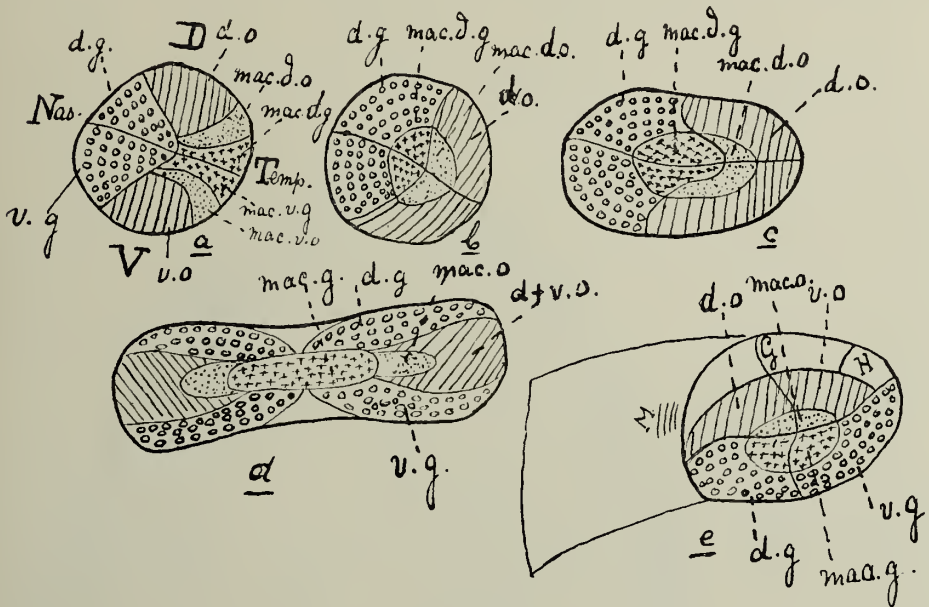 d.g.
D
d.o
mac.d.o
mac.d.g
Nas.
Temp.
v.g
mac.v.g
mac.v.o
V
v.o
a
d.g
mac.d.g
mac.d.o.
b
d.g
mac.d.g
mac.d.o
d.o.
c
mac.g.
d.g
mac.o
d+v.o.
v.g.
d
d.o
mac.o.
v.o
G
H
M
v.g
e
d.g
mac.g.